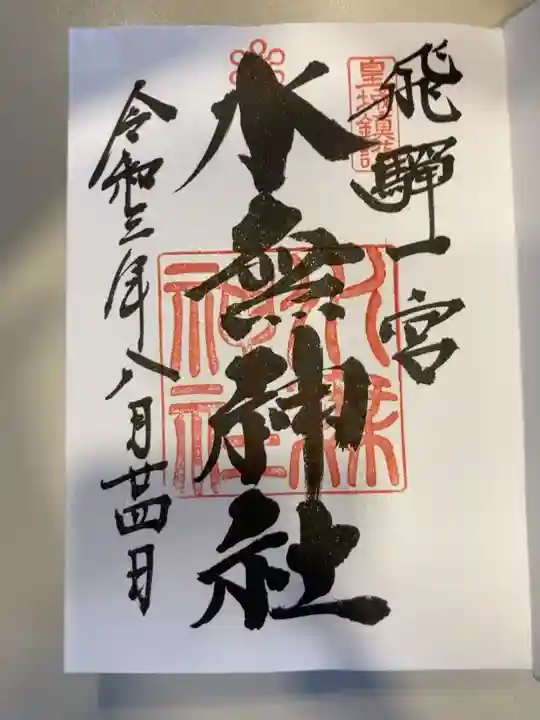 飛騨一宮
皇城鎮護
水無神社
水無神社
令和三年八月廿四日